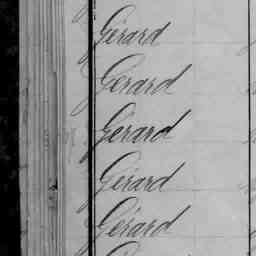 Gérard
Gérard
Gérard
Gérard
Gérard